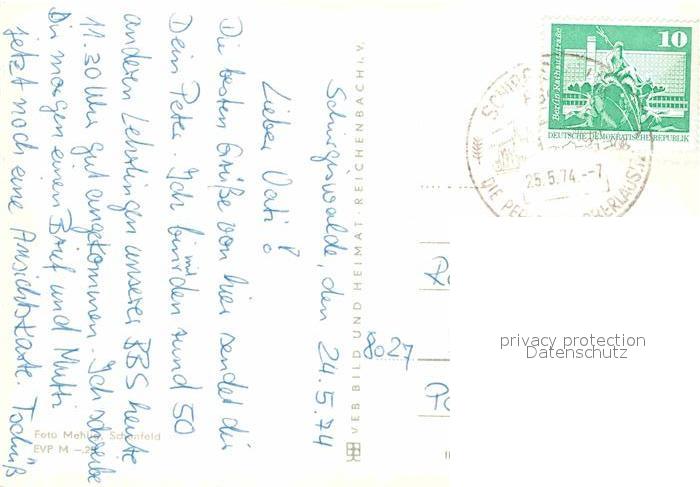 Schirgiswalde, den 24.5.74
Lieber Vati!
Die besten Grüße von hier sendet dir
Dein Peter. Ich bin mit den rund 50
anderen Lehrlingen unserer BBS heute
11.30 Uhr gut angekommen. Ich schreibe
Dir morgen einen Brief und Mutti
jetzt noch eine Ansichtskarte. Tschüß
Foto Mehlig, Schönfeld
EVP M -.20
VEB BILD UND HEIMAT · REICHENBACH I. V.
10
Berlin Rathausstraße
DEUTSCHE DEMOKRATISCHE REPUBLIK
25.5.74.-7
DIE PERLE DER OBERLAUSITZ
8027
privacy protection
Datenschutz